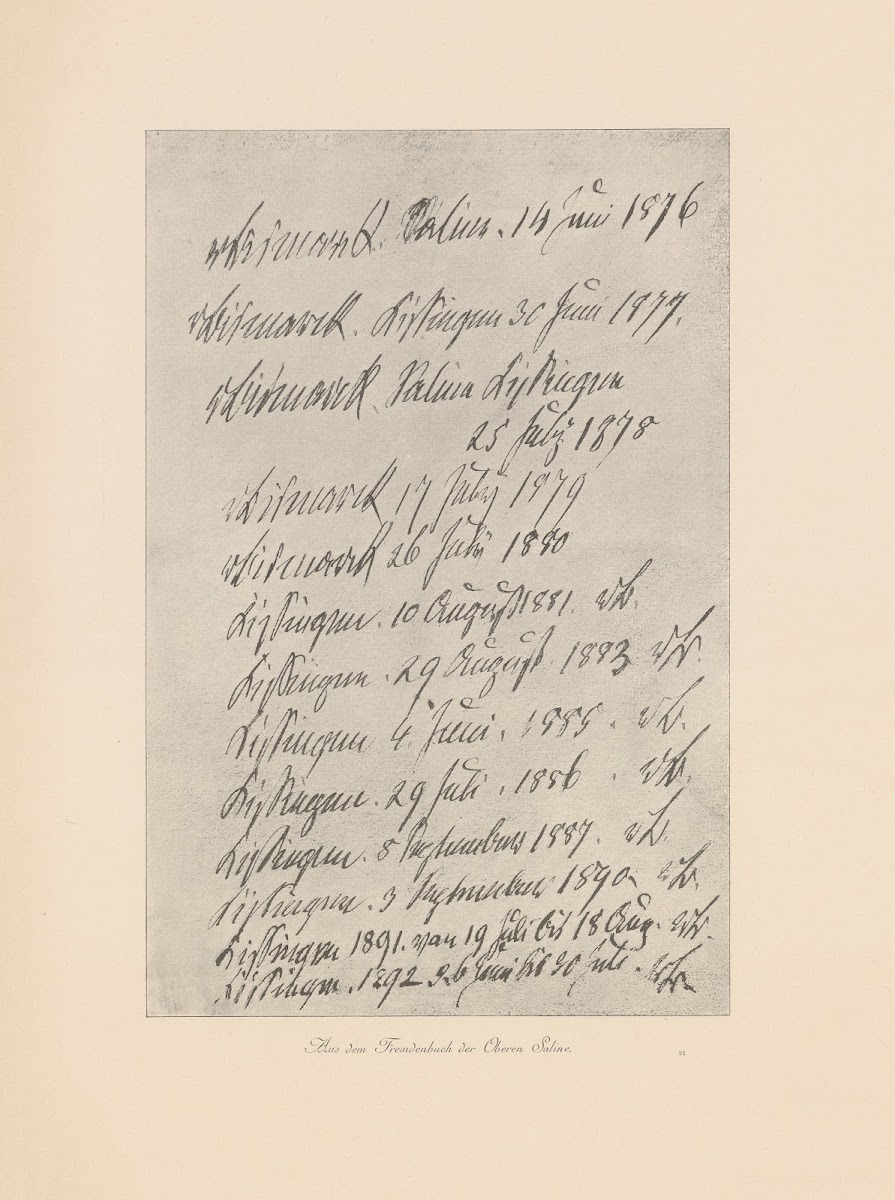 vBismarck. Saline. 14 Juni 1876
vBismarck. Kissingen 30 Juni 1877.
vBismarck. Saline Kissingen
25 July 1878
vBismarck 17 July 1879
vBismarck 26 July 1880
Kissingen. 10 August 1881. vB.
Kissingen. 29 August. 1883 vB.
Kissingen 4. Juni. 1885. vB.
Kissingen. 29 Juli. 1886. vB.
Kissingen. 8 September 1887. vB.
Kissingen. 3 September 1890. vB.
Kissingen 1891. von 19 Juli bis 18 Aug. vB.
Kissingen. 1892 26 Juni bis 30 Juli. vB.
Aus dem Fremdenbuch der Oberen Saline.
21